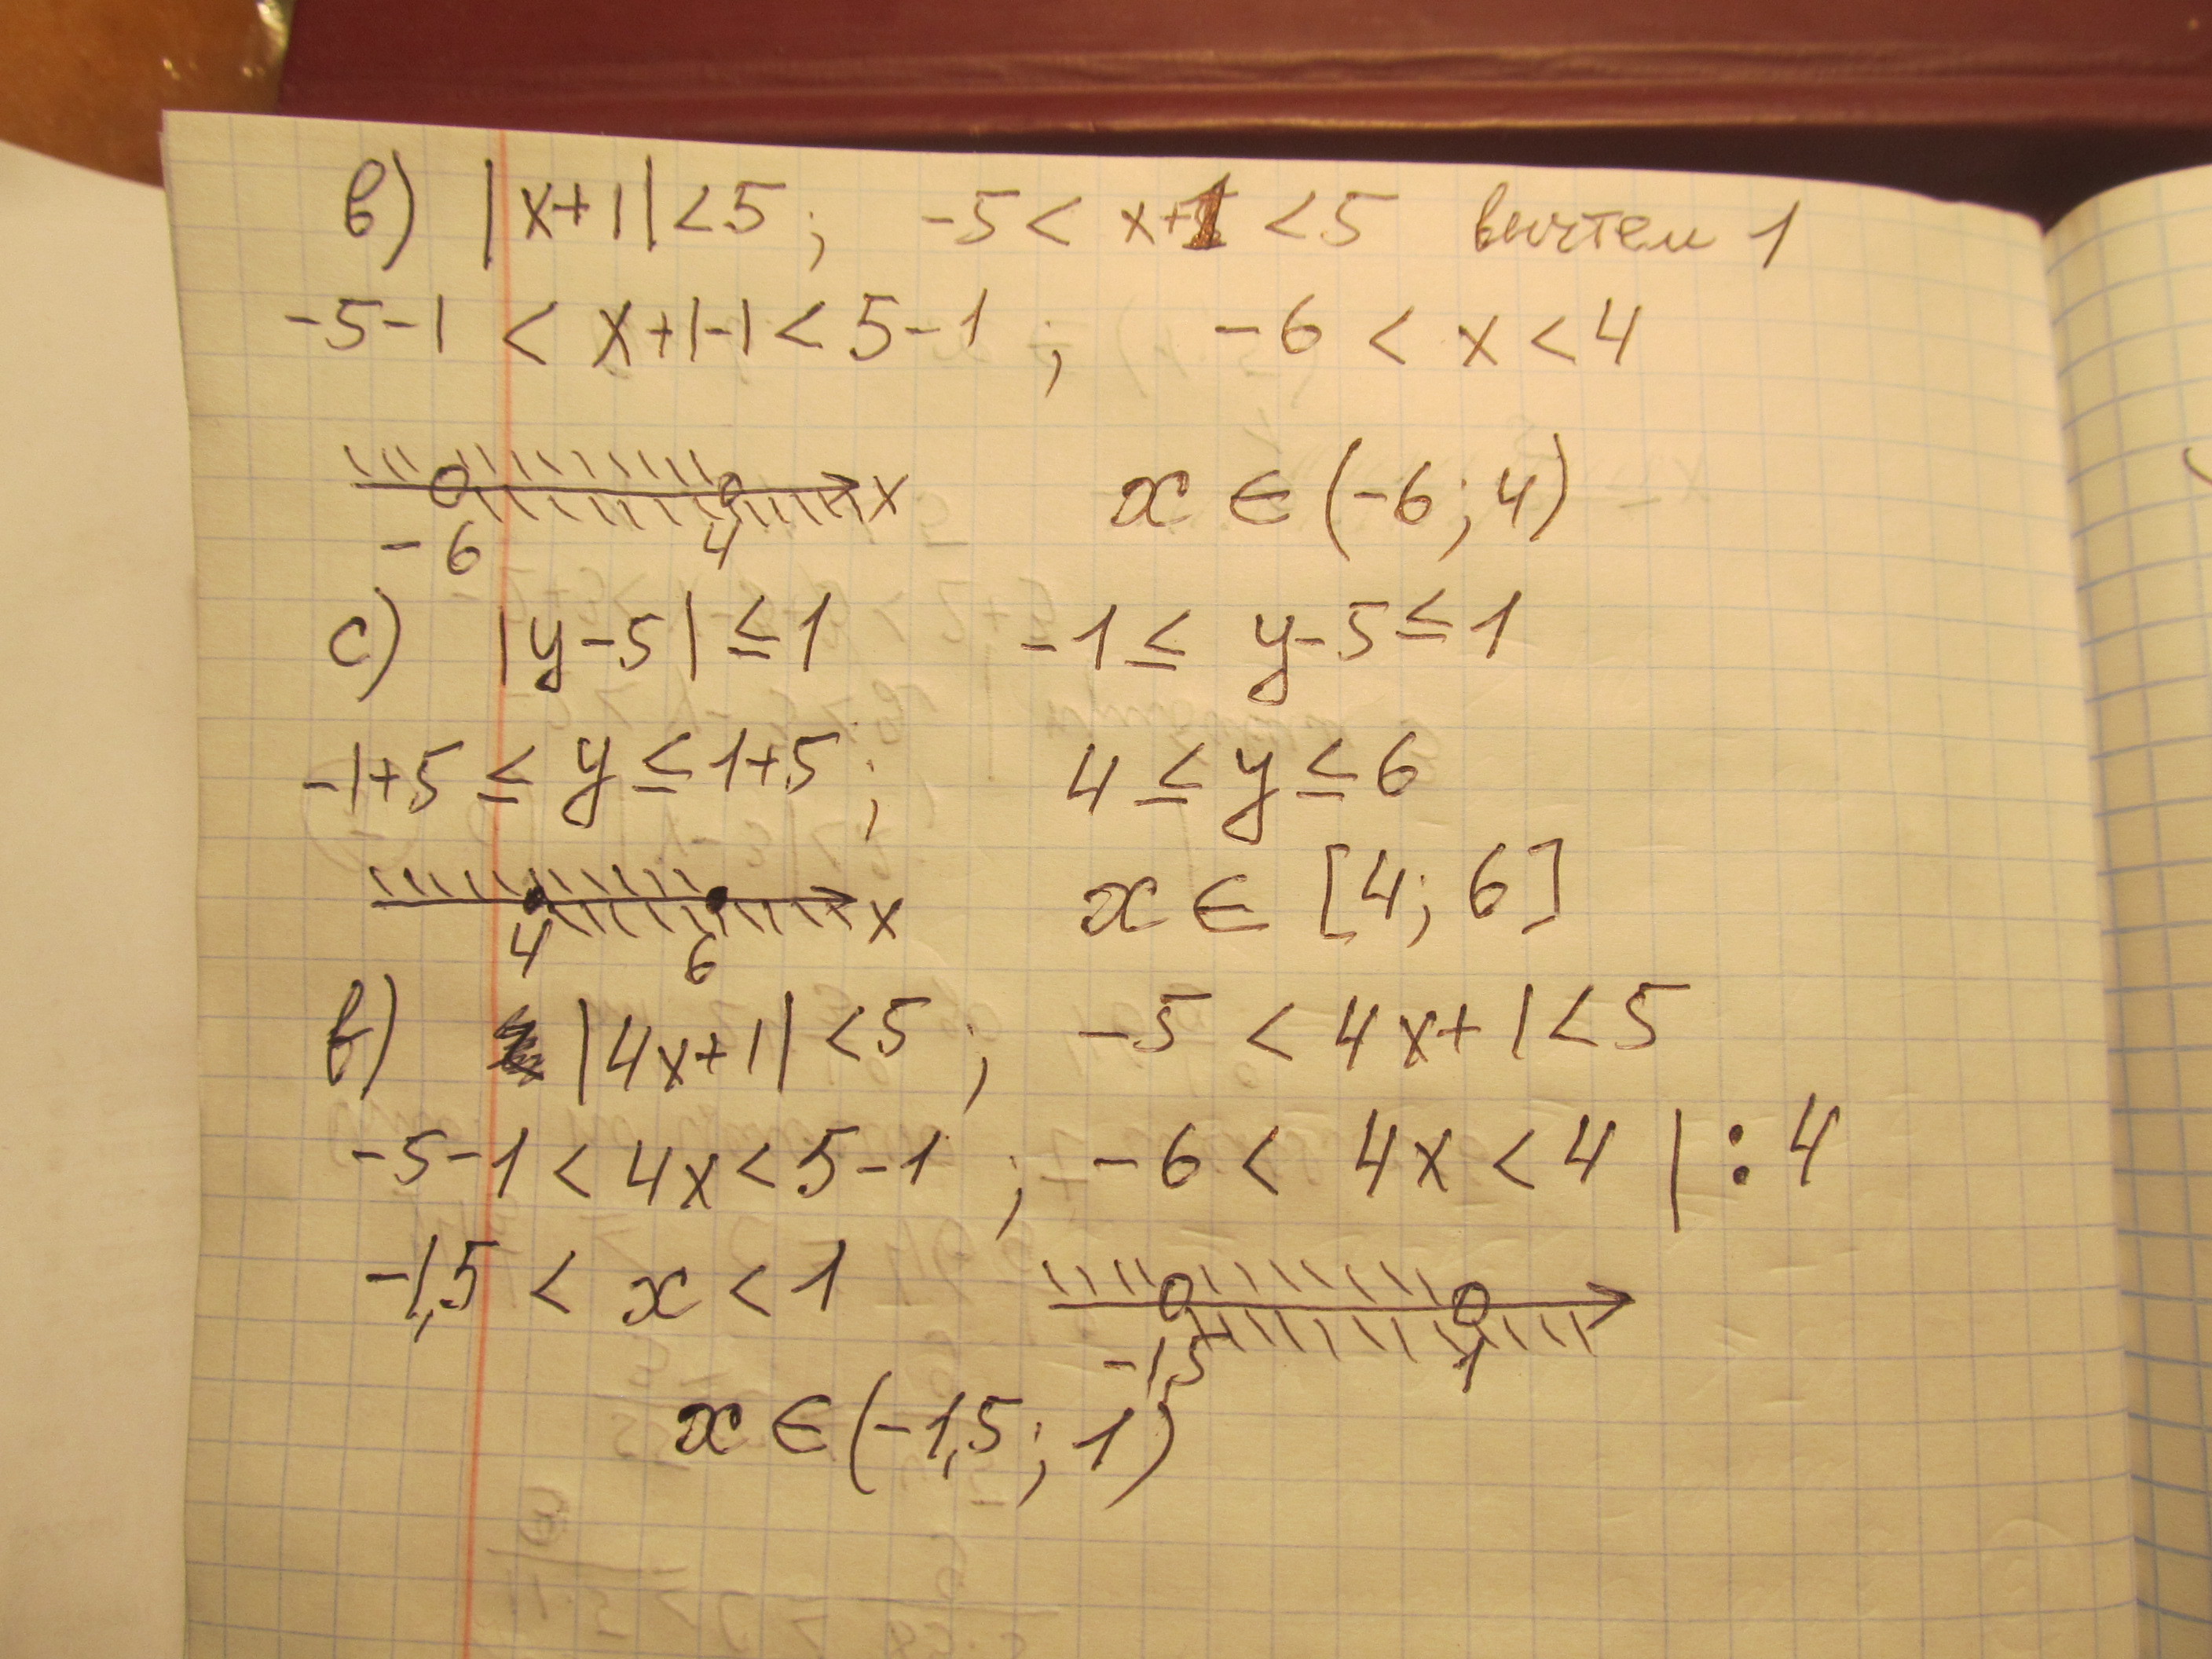 в) |x+1|<5; -5< x+1 <5 вычтем 1
-5-1 < x+1-1 < 5-1; -6 < x < 4
-6 4 x
x ∈ (-6; 4)
c) |y-5| ≤ 1 -1 ≤ y-5 ≤ 1
-1+5 ≤ y ≤ 1+5; 4 ≤ y ≤ 6
4 6 x
x ∈ [4; 6]
f) |4x+1| <5; -5 < 4x+1 <5
-5-1 < 4x < 5-1; -6 < 4x < 4 | : 4
-1,5 < x < 1
-1,5 1
x ∈ (-1,5; 1)